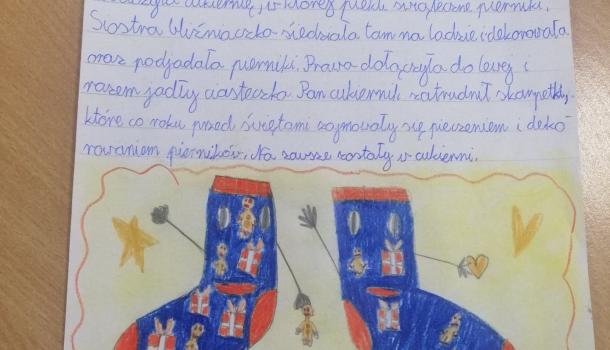 cukiernię, w której piekli świąteczne pierniki.
Siostra bliźniaczka siedziała tam na ladzie i dekorowała
oraz podjadała pierniki. Prawa dołączyła do lewej i
razem jadły ciasteczka. Pan cukiernik zatrudnił skarpetki,
które co roku przed świętami zajmowały się pieczeniem i deko
rowaniem pierników. Na zawsze zostały w cukierni.